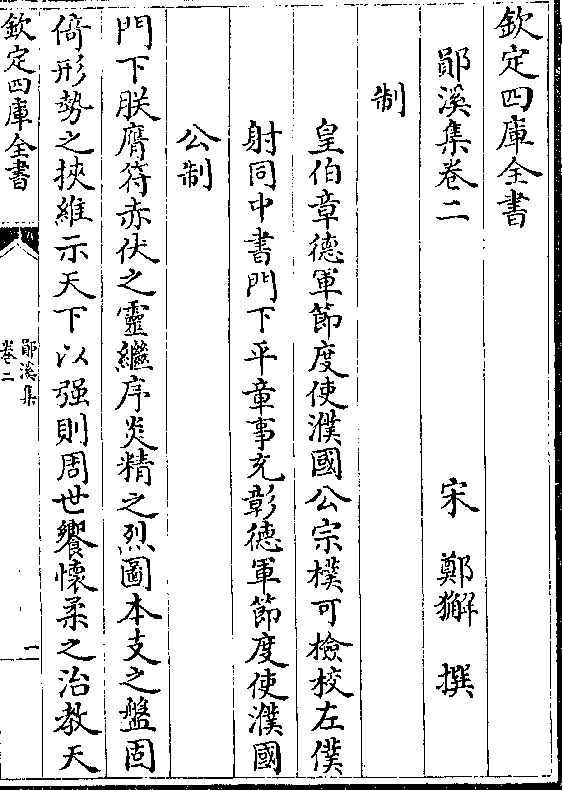 欽定四庫全書
鄖溪集卷二
宋 鄭獬 撰
制
皇伯章德軍節度使濮國公宗樸可檢校左僕
射同中書門下平章事充彰德軍節度使濮國
公制
門下朕膺符赤伏之靈繼序炎精之烈圖本支之盤固
倚形勢之挾維示天下以强則周世饗懷柔之治教天
欽定四庫全書
鄖溪集
卷二
一